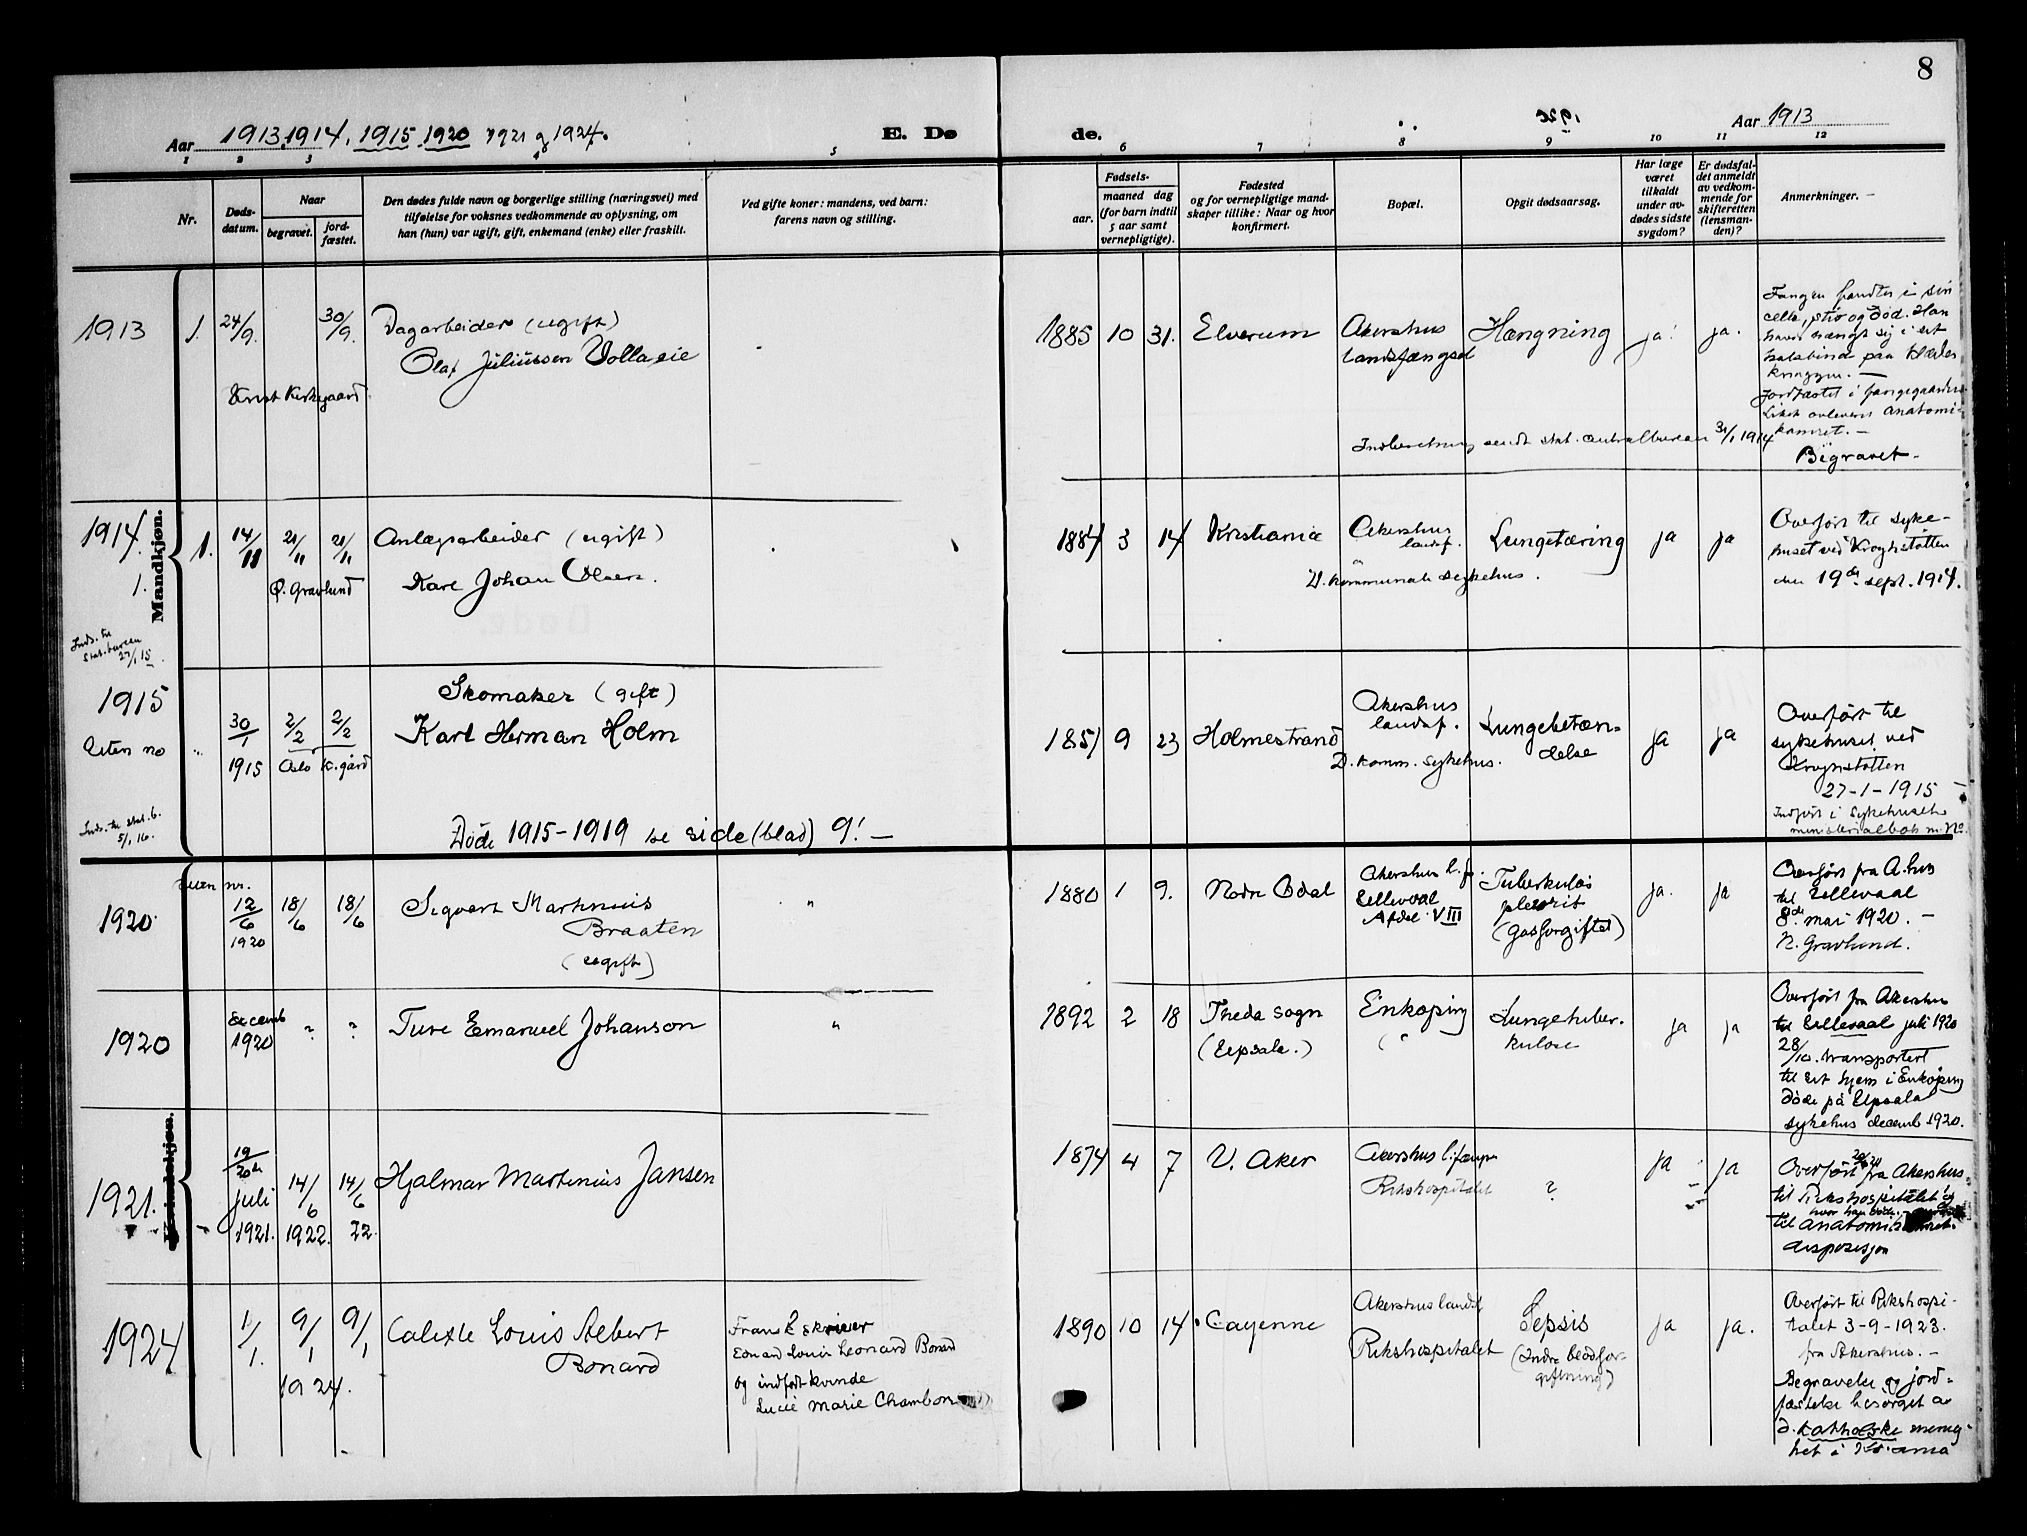 8
Aar 1913, 1914, 1915 1920 1921 og 1924.
E. Dø
de.
Aar 1913
1 2 3 4 5 6 7 8 9 10 11 12
Nr.
Døds-
datum.
Naar
begravet.
jord-
fæstet.
Den dødes fulde navn og borgerlige stilling (næringsvei) med
tilføielse for voksnes vedkommende av oplysning, om
han (hun) var ugift, gift, enkemand (enke) eller fraskilt.
Ved gifte koner: mandens, ved barn:
farens navn og stilling.
Fødsels-
aar.
maaned dag
(for barn indtil
5 aar samt
vernepligtige).
Fødested
og for vernepligtige mand-
skaper tillike: Naar og hvor
konfirmert.
Bopæl.
Opgit dødsaarsag.
Har læge
været
tilkaldt
under av-
dødes sidste
sygdom?
Er dødsfal-
det anmeldt
av vedkom-
mende for
skifteretten
(lensman-
den)?
Anmerkninger.
Mandkjøn.
1913 1. 24/9. 30/9. Dagarbeider (ugift)
Olaf Juliussen Vollaeie
Krist Kirkegaard
1885 10 31. Elverum Akershus
landsfængsel
Hængning ja! ja.
Fangen fandtes i sin
celle, stiv og død. Han
havde hængt sig i et
halsbind paa klædes
knaggen. —
Jordfæstet i fængegaarden
Liket avleveret anatomi-
kamret. —
Begravet.
Indberetning sendt stat. centralbureau 31/1 1914
1914. 1. 1. 14/11 21/11 21/11 Anlægsarbeider (ugift)
Karl Johan Olsen.
Ø. Gravlund
Inds. til
Stat. bureau
27/1 15.
1884 3 14 Kristiania Akershus
landsf.
V. Kommunale sykehus.
Lungetæring ja ja
Overført til syke-
huset ved Krohgstøtten
den 19de sept. 1914.
1915
Uten no
30/1 1915 2/2 2/2
Oslo K.gård
Skomaker (gift)
Karl Herman Holm
Inds. til stat. b.
5/1 16.
1851 9 23 Holmestrand Akershus
landsf.
D. komm. sykehus.
Lungebetæn-
delse
ja ja
Overført til
sykehuset ved
Krohgstøtten
27-1-1915
Indført i Sykehusets
ministerialbok m. No.
Døde 1915-1919 se side (blad) 9! —
uten nr.
1920 12/6 1920 18/6 18/6 Sigvart Martinius
Braaten
(ugift)
"
1880 1 9. Nordre Odal Akershus l.f.
Ullevaal
Afdel. VIII
Tuberkuløs
pleurit
(gasforgiftet)
ja. ja
Overført fra A.hus
til Ullevaal
8de mai 1920. —
N. Gravlund.
1920 Decemb
1920 ? ? Ture Emanuel Johanson "
1892 2 18 Freda sogn
(Upsala.)
Enkøping
Lungetuber-
kulose
ja ja
Overført fra Akershus
til Ullevaal juli 1920
28/10. transportert
til sit hjem i Enkøping
Døde på Upsala
sykehus decemb 1920.
Kvindekjøn.
1921. 19/20de
juli
1921. 14/6
1922. 14/6
22. Hjalmar Martinius Jansen
1874 4 7 V. Aker Akershus l.fængs
Rikshospitalet
? ja ja
Overført 20/20 fra Akershus
til Rikshospitalet og
hvor han døde.
til anatomis
disposisjon
1924 1/1. 9/1 9/1
1924.
Calixte Louis Albert
Bonard
Fransk skriver
Edward Louis Leonard Bonard
og indfødt kvinde
Lucie Marie Chambon
1890 10 14 Cayenne Akershus landsf
Rikshospitalet
Sepsis
(Indre blodfor-
giftning)
ja ja.
Overført til Rikshospi-
talet 3-9-1923.
fra Akershus. —
Begravelse og jord-
fæstelse besørget av
d. katholske menig-
het i Kr.ania